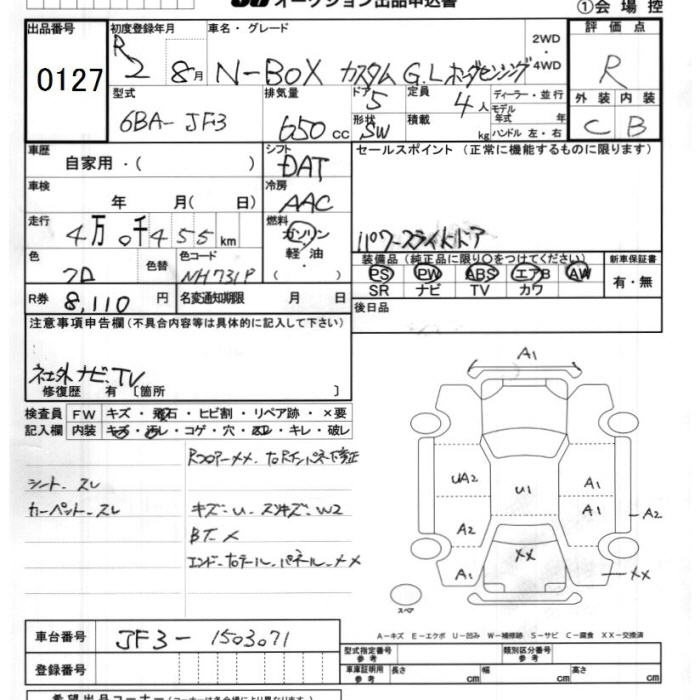 オークション出品申込書
①会場控
出品番号 0127
初度登録年月 R2 8月
車名・グレード N-BOX カスタム G.Lホンダセンシング
2WD・4WD
評価点 R
外装 C 内装 B
型式 6BA-JF3
排気量 650cc
ドア 5 形状 SW
定員 4人 積載 kg
ディーラー・並行
モデル年式 年
ハンドル 左・右
車歴 自家用・( )
シフト DAT
セールスポイント (正常に機能するものに限ります)
車検 年 月( 日)
冷房 AAC
走行 4万0千455km
燃料 ガソリン・軽油・( )
パワースライドドア
色 クロ 色替 色コード NH731P
装備品(純正品に限り○をつけてください)
PS PW ABS エアB AW
SR ナビ TV カワ
新車保証書 有・無
R券 8,110円
名変通知期限 月 日
後日品
注意事項申告欄(不具合内容等は具体的に記入して下さい)
社外ナビ、TV
修復歴 有〔箇所 〕
検査員 FW キズ・飛石・ヒビ割・リペア跡・×要
記入欄 内装 キズ・汚レ・コゲ・穴・凹・キレ・破レ
シート、スレ
カーペット、スレ
キズ、U、スリキズ、W2
BT メ
エンド、右テール、パネル、メメ
A1
UA2
U1
A1
A1
A2
A2
A1
XX
XX
スペア
A-キズ E-エクボ U-凹み W-補修跡 S-サビ C-腐食 XX-交換済
車台番号 JF3-1503071
登録番号
型式指定番号 参考
類別区分番号 参考
車庫証明用参考 長さ cm 幅 cm 高さ cm
希望出品コーナー